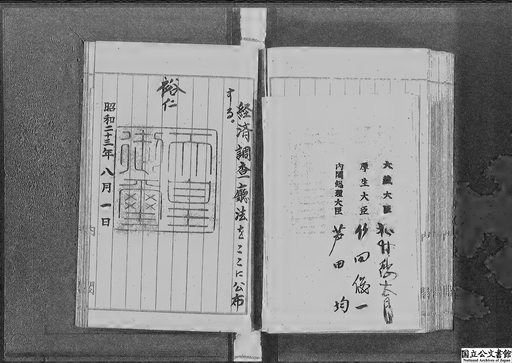 経済調査廳法をここに公布
する。
裕仁
天皇
御璽
昭和二十三年八月一日
内閣総理大臣 芦田均
厚生大臣 竹田儀一
大蔵大臣
国立公文書館
National Archives of Japan